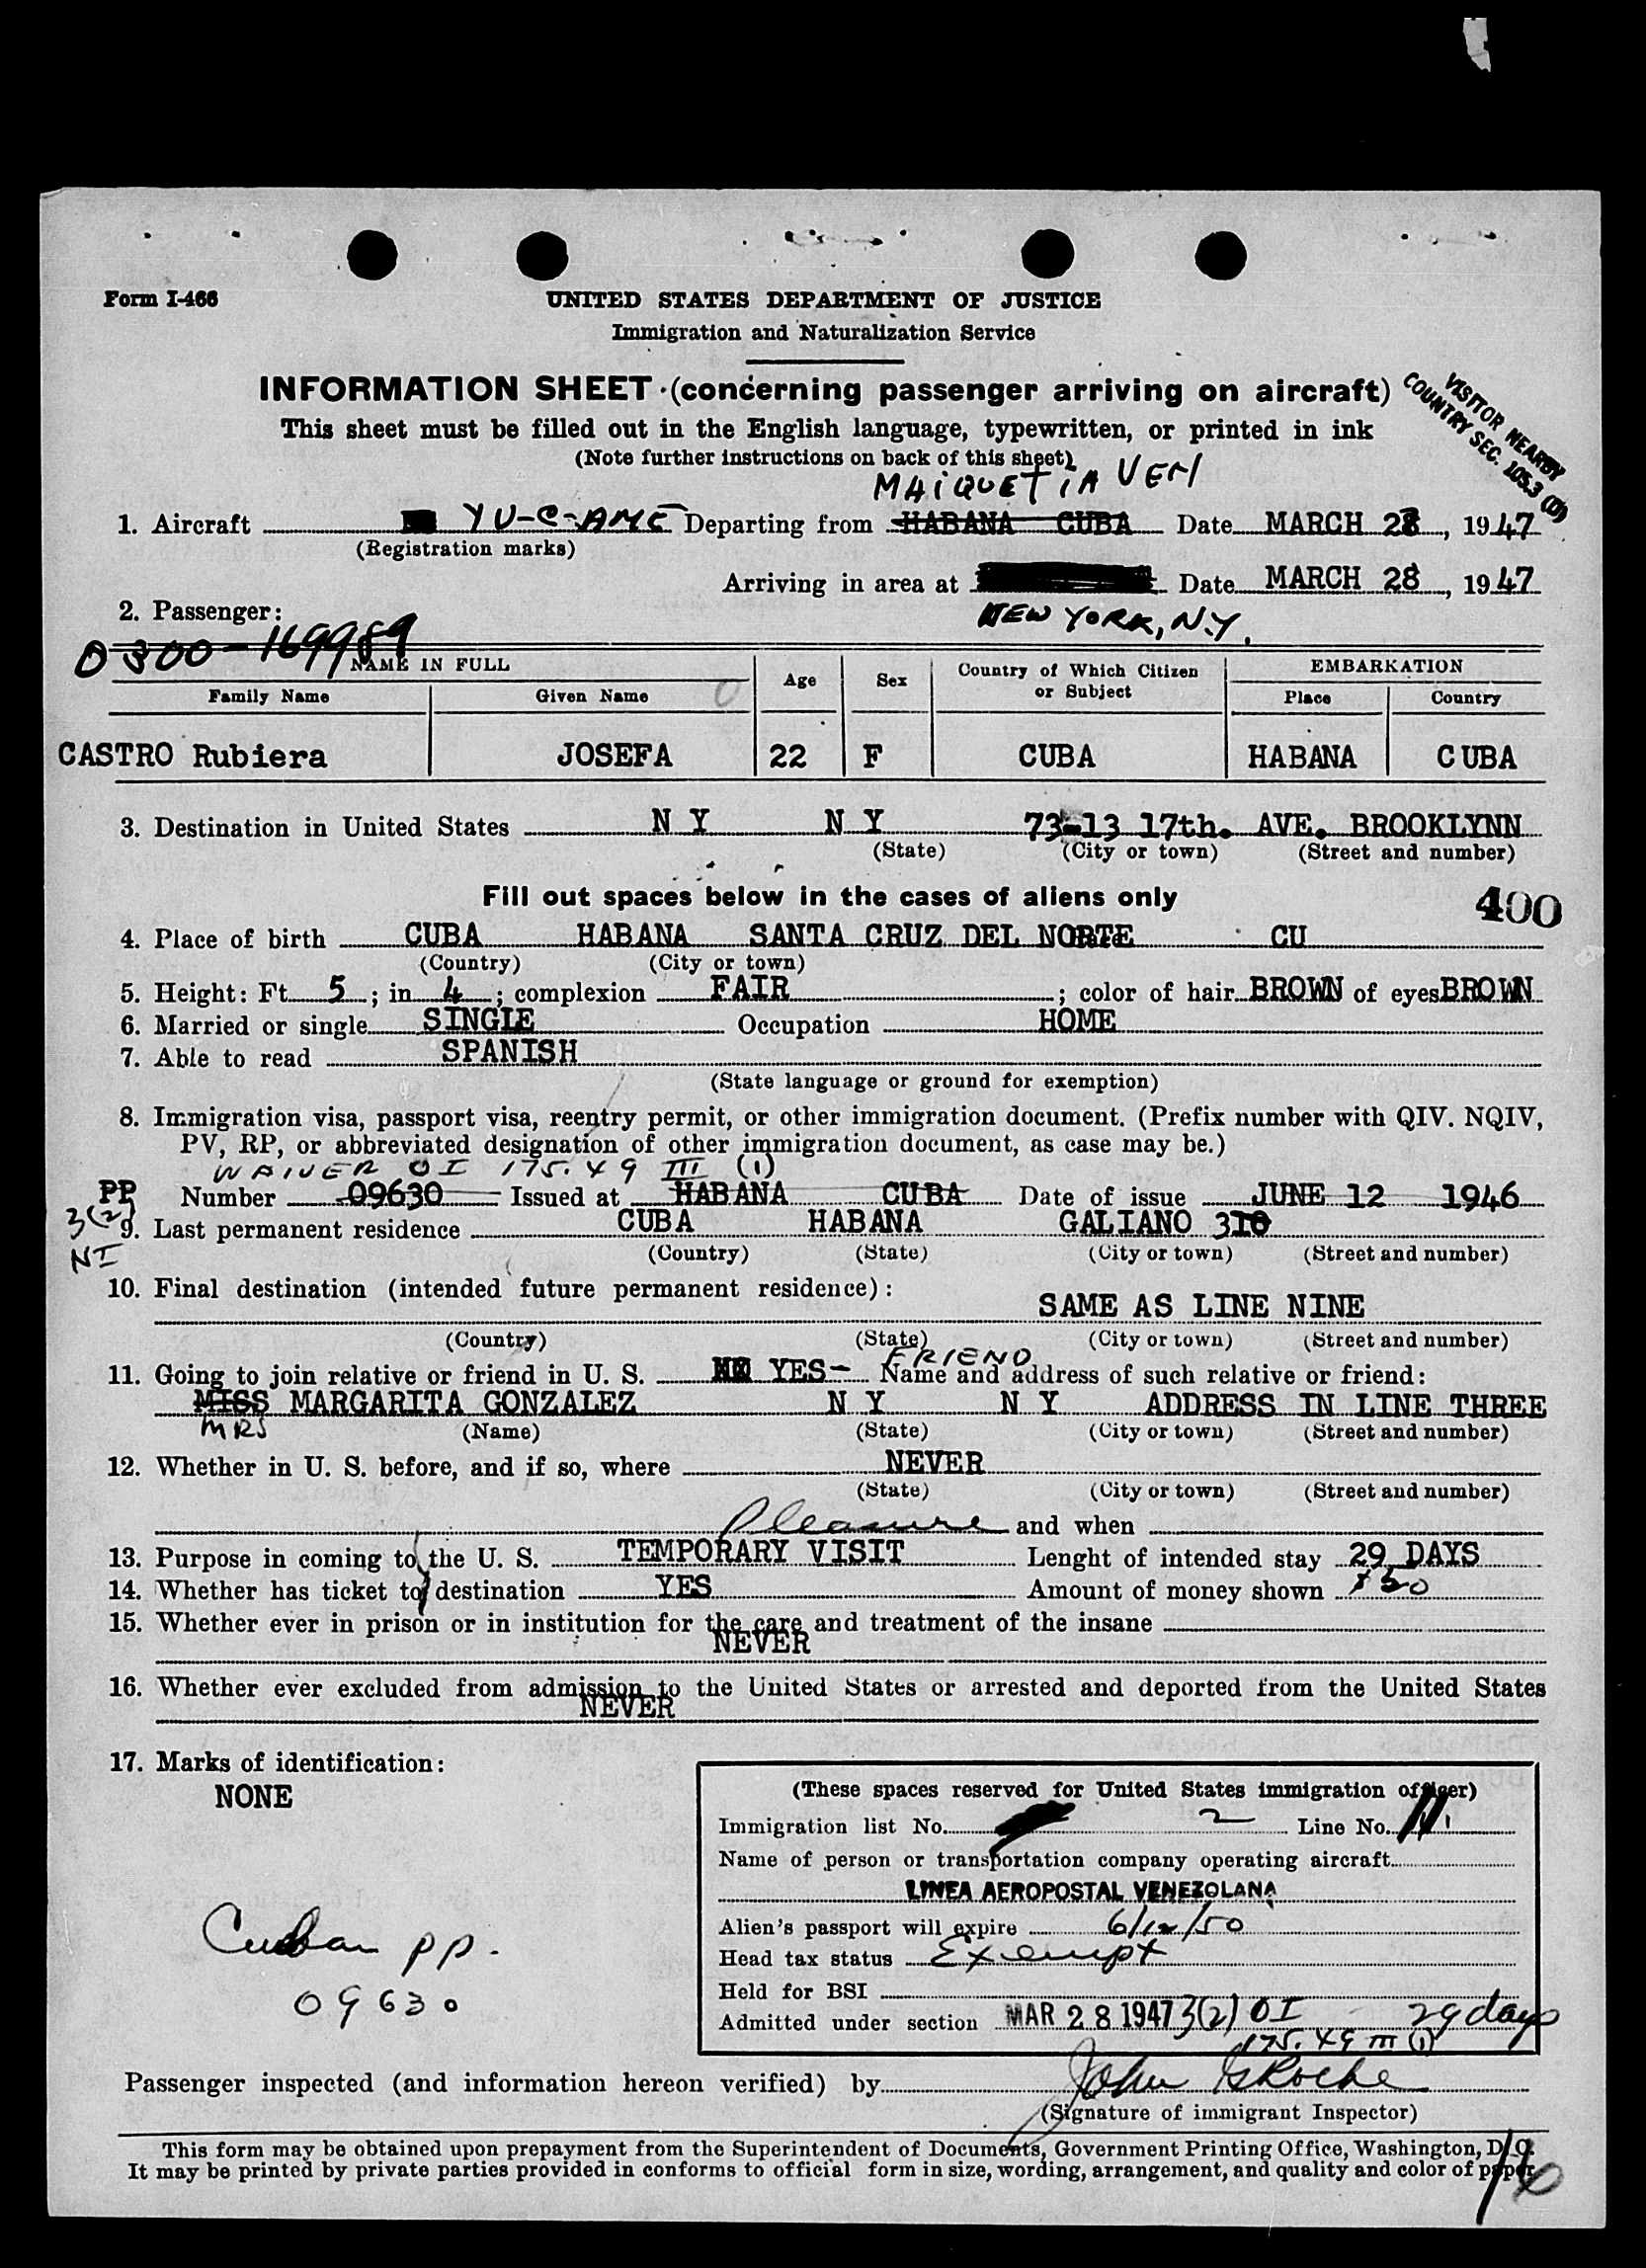 Form I-466
UNITED STATES DEPARTMENT OF JUSTICE
Immigration and Naturalization Service
INFORMATION SHEET (concerning passenger arriving on aircraft)
VISITOR NEARBY
COUNTRY SEC. 105.3 (D)
This sheet must be filled out in the English language, typewritten, or printed in ink
(Note further instructions on back of this sheet)
MAIQUETIA VEN
1. Aircraft YU-C-AME Departing from HABANA CUBA Date MARCH 28, 1947
(Registration marks)
Arriving in area at Date MARCH 28, 1947
NEW YORK, N.Y.
2. Passenger:
0300-169989
NAME IN FULL Age Sex Country of Which Citizen or Subject EMBARKATION
Family Name Given Name Place Country
CASTRO Rubiera JOSEFA 22 F CUBA HABANA CUBA
3. Destination in United States N Y N Y 73-13 17th. AVE. BROOKLYNN
(State) (City or town) (Street and number)
Fill out spaces below in the cases of aliens only
400
4. Place of birth CUBA HABANA SANTA CRUZ DEL NORTE CU
(Country) (City or town)
5. Height: Ft. 5; in. 4; complexion FAIR; color of hair BROWN of eyes BROWN
6. Married or single SINGLE Occupation HOME
7. Able to read SPANISH
(State language or ground for exemption)
8. Immigration visa, passport visa, reentry permit, or other immigration document. (Prefix number with QIV. NQIV,
PV, RP, or abbreviated designation of other immigration document, as case may be.)
WAIVER OI 175.49 III (1)
PP Number 09630 Issued at HABANA CUBA Date of issue JUNE 12 1946
3(2)
NI
9. Last permanent residence CUBA HABANA GALIANO 310
(Country) (State) (City or town) (Street and number)
10. Final destination (intended future permanent residence):
SAME AS LINE NINE
(Country) (State) (City or town) (Street and number)
FRIEND
11. Going to join relative or friend in U. S. YES- Name and address of such relative or friend:
MISS MARGARITA GONZALEZ N Y N Y ADDRESS IN LINE THREE
MRS (Name) (State) (City or town) (Street and number)
12. Whether in U. S. before, and if so, where NEVER
(State) (City or town) (Street and number)
Pleasure and when
13. Purpose in coming to the U. S. TEMPORARY VISIT Lenght of intended stay 29 DAYS
14. Whether has ticket to destination YES Amount of money shown $50
15. Whether ever in prison or in institution for the care and treatment of the insane
NEVER
16. Whether ever excluded from admission to the United States or arrested and deported from the United States
NEVER
17. Marks of identification:
NONE
(These spaces reserved for United States immigration officer)
Immigration list No. 2 Line No. 11
Name of person or transportation company operating aircraft
LINEA AEROPOSTAL VENEZOLANA
Alien's passport will expire 6/12/50
Head tax status Exempt
Held for BSI
Admitted under section MAR 28 1947 3(2) OI 29 days
175.49 III (1)
Cuban pp.
09630
Passenger inspected (and information hereon verified) by
(Signature of immigrant Inspector)
This form may be obtained upon prepayment from the Superintendent of Documents, Government Printing Office, Washington, D. C.
It may be printed by private parties provided in conforms to official form in size, wording, arrangement, and quality and color of paper.
16